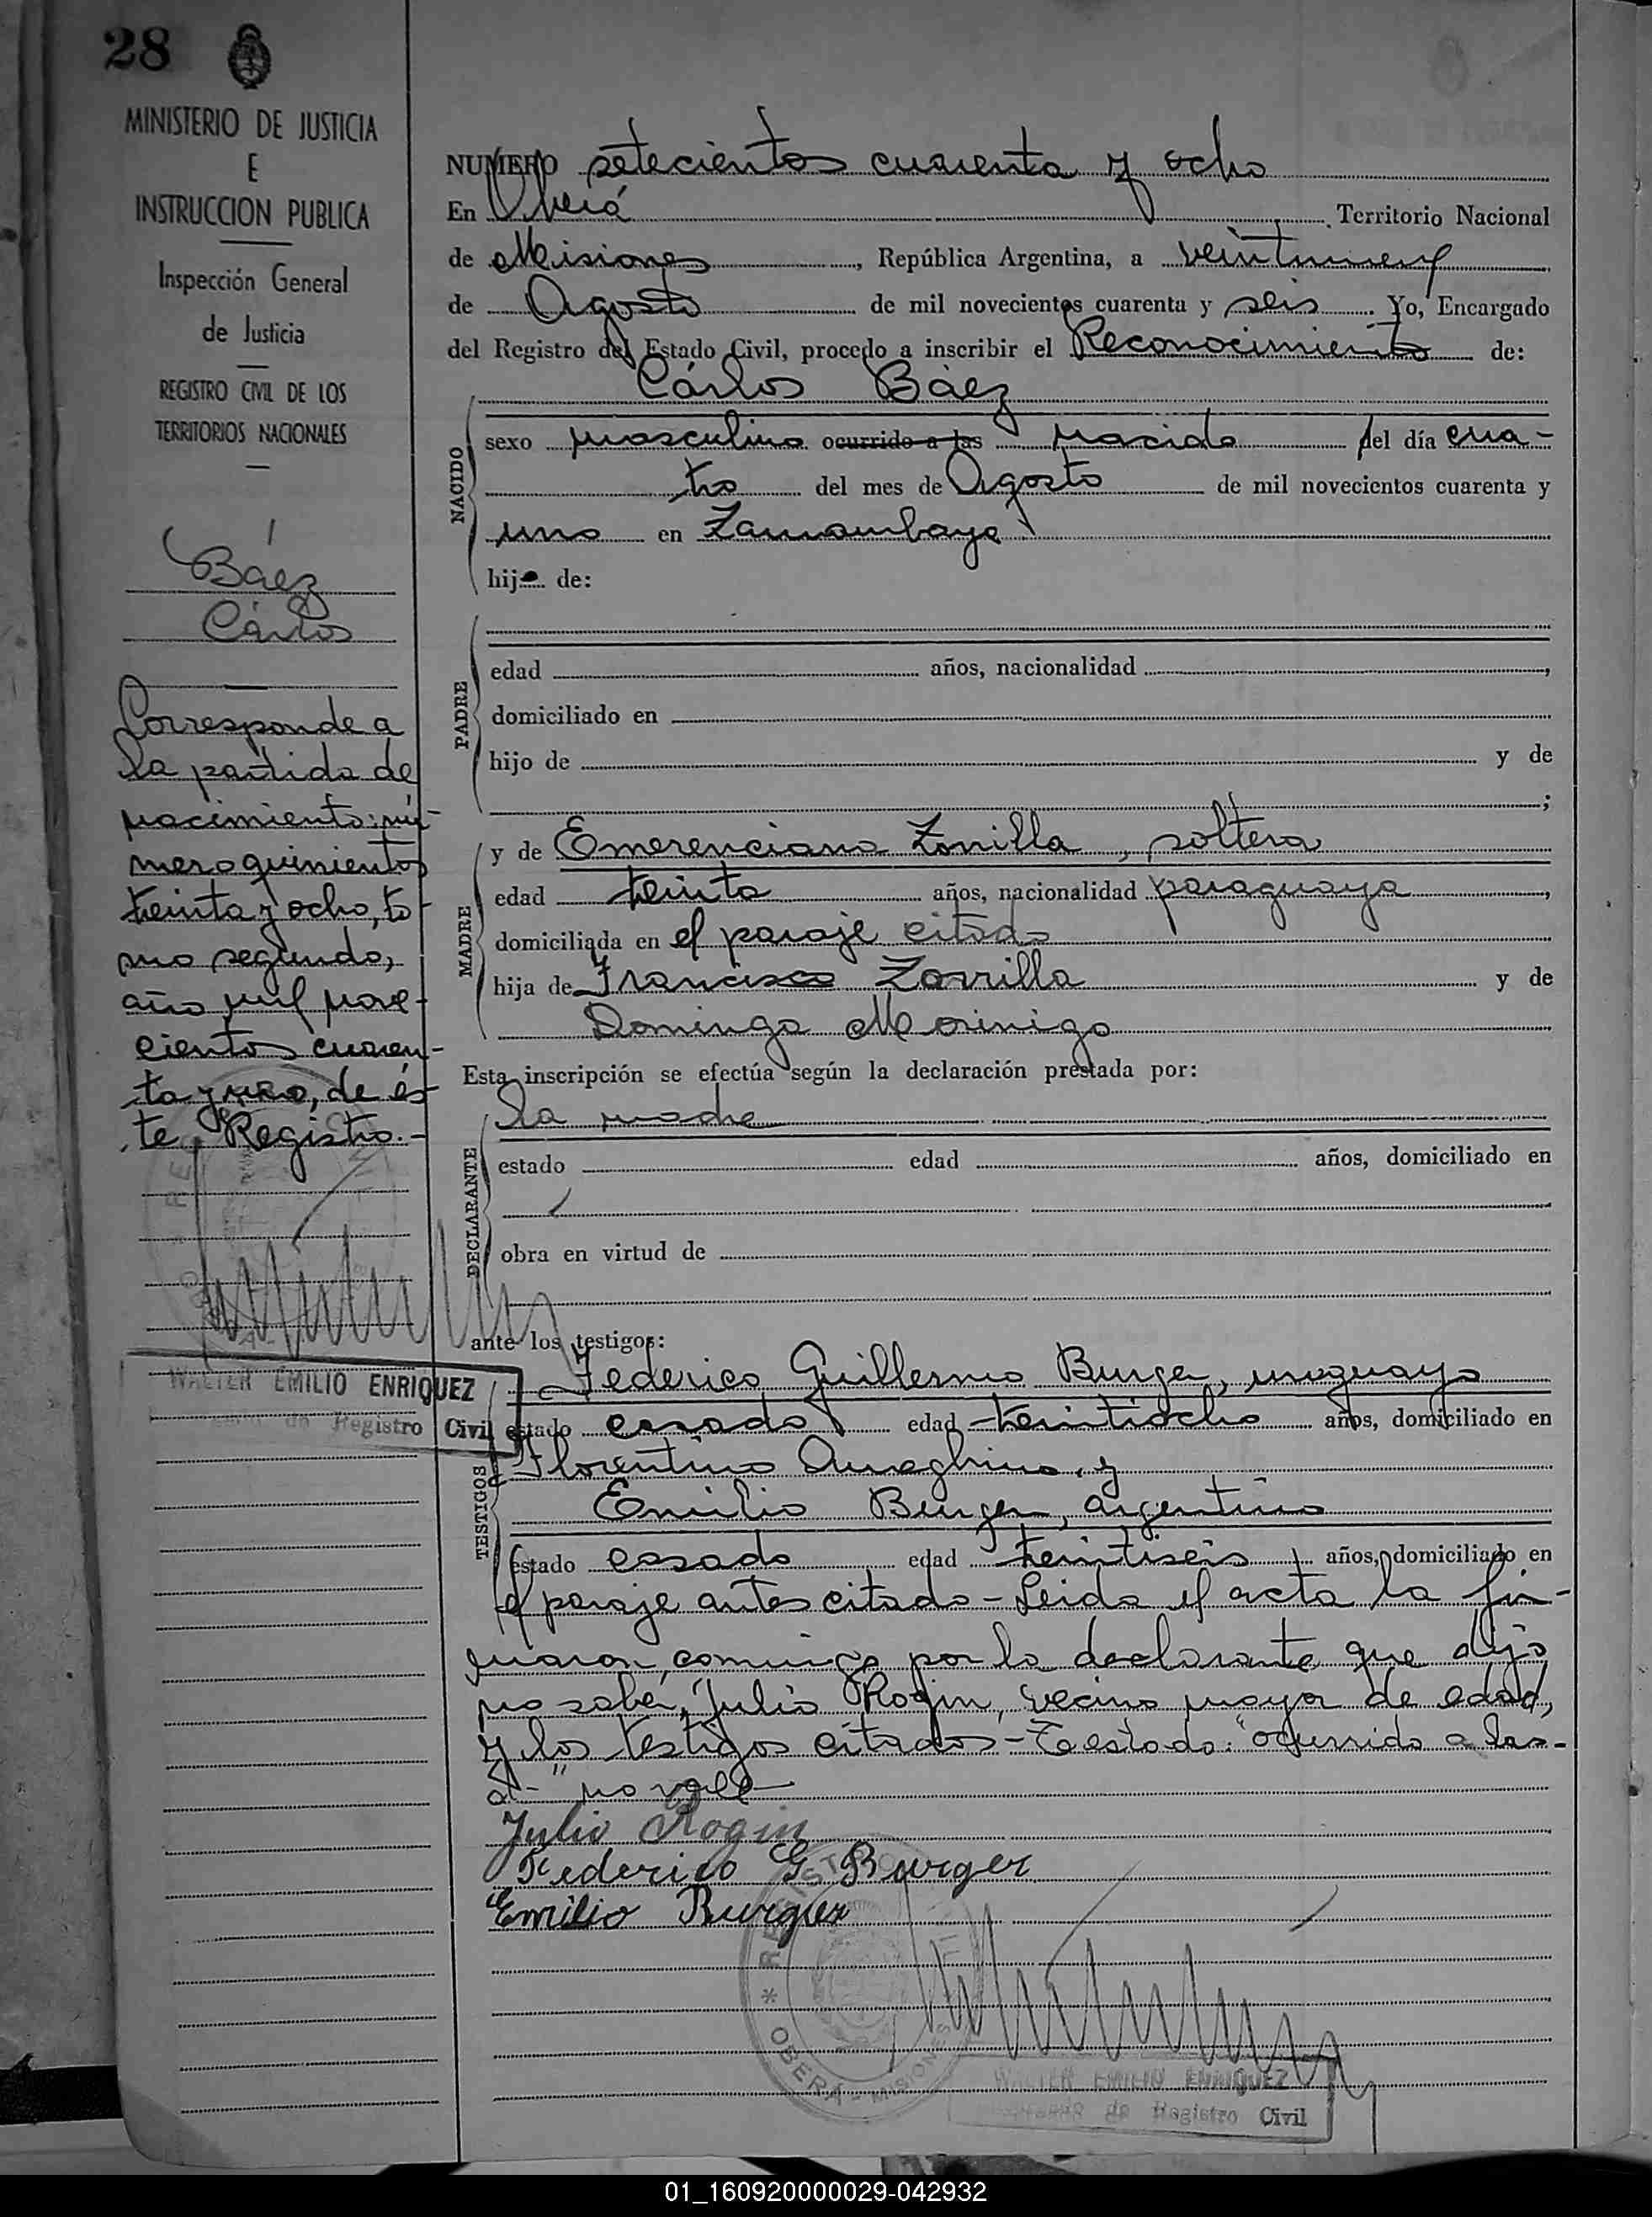 28
MINISTERIO DE JUSTICIA
E
INSTRUCCION PUBLICA
Inspección General
de Justicia
REGISTRO CIVIL DE LOS
TERRITORIOS NACIONALES
Báez
Cárlos
Corresponde a
la partida de
nacimiento: nú-
mero quinientos
treinta y ocho, to-
mo segundo,
año mil nove-
cientos cuaren-
ta y uno, de és-
te Registro.-
WALTER EMILIO ENRIQUEZ
de Registro Civil
NUMERO setecientos cuarenta y ocho
En Oberá Territorio Nacional
de Misiones, República Argentina, a veintinueve
de Agosto de mil novecientos cuarenta y seis. Yo, Encargado
del Registro del Estado Civil, procedo a inscribir el Reconocimiento de:
Cárlos Báez
NACIDO
sexo masculino ocurrido a las nacido del día cua-
tro del mes de Agosto de mil novecientos cuarenta y
uno en Zamambaya
hijo de:
PADRE
edad años, nacionalidad ,
domiciliado en
hijo de y de
;
MADRE
y de Emerenciana Zorrilla, soltera
edad treinta años, nacionalidad paraguaya,
domiciliada en el paraje citado
hija de Francisco Zorrilla y de
Dominga Morinigo
Esta inscripción se efectúa según la declaración prestada por:
DECLARANTE
la madre
estado edad años, domiciliado en
obra en virtud de
ante los testigos:
TESTIGOS
Federico Guillermo Burger, uruguayo
estado casado edad treintiocho años, domiciliado en
Florentino Ameghino, y
Emilio Burger, argentino
estado casado edad treintiseis años, domiciliado en
el paraje antes citado - Leida el acta la fir-
maron conmigo por la declarante que dijo
no saber, Julio Rogin, vecino mayor de edad,
y los testigos citados - Testado: "ocurrido a las-
d-" no vale
Julio Rogin
Federico G Burger
Emilio Burger
REGISTRO
OBERÁ - MISIONES
WALTER EMILIO ENRIQUEZ
de Registro Civil
01_160920000029-042932